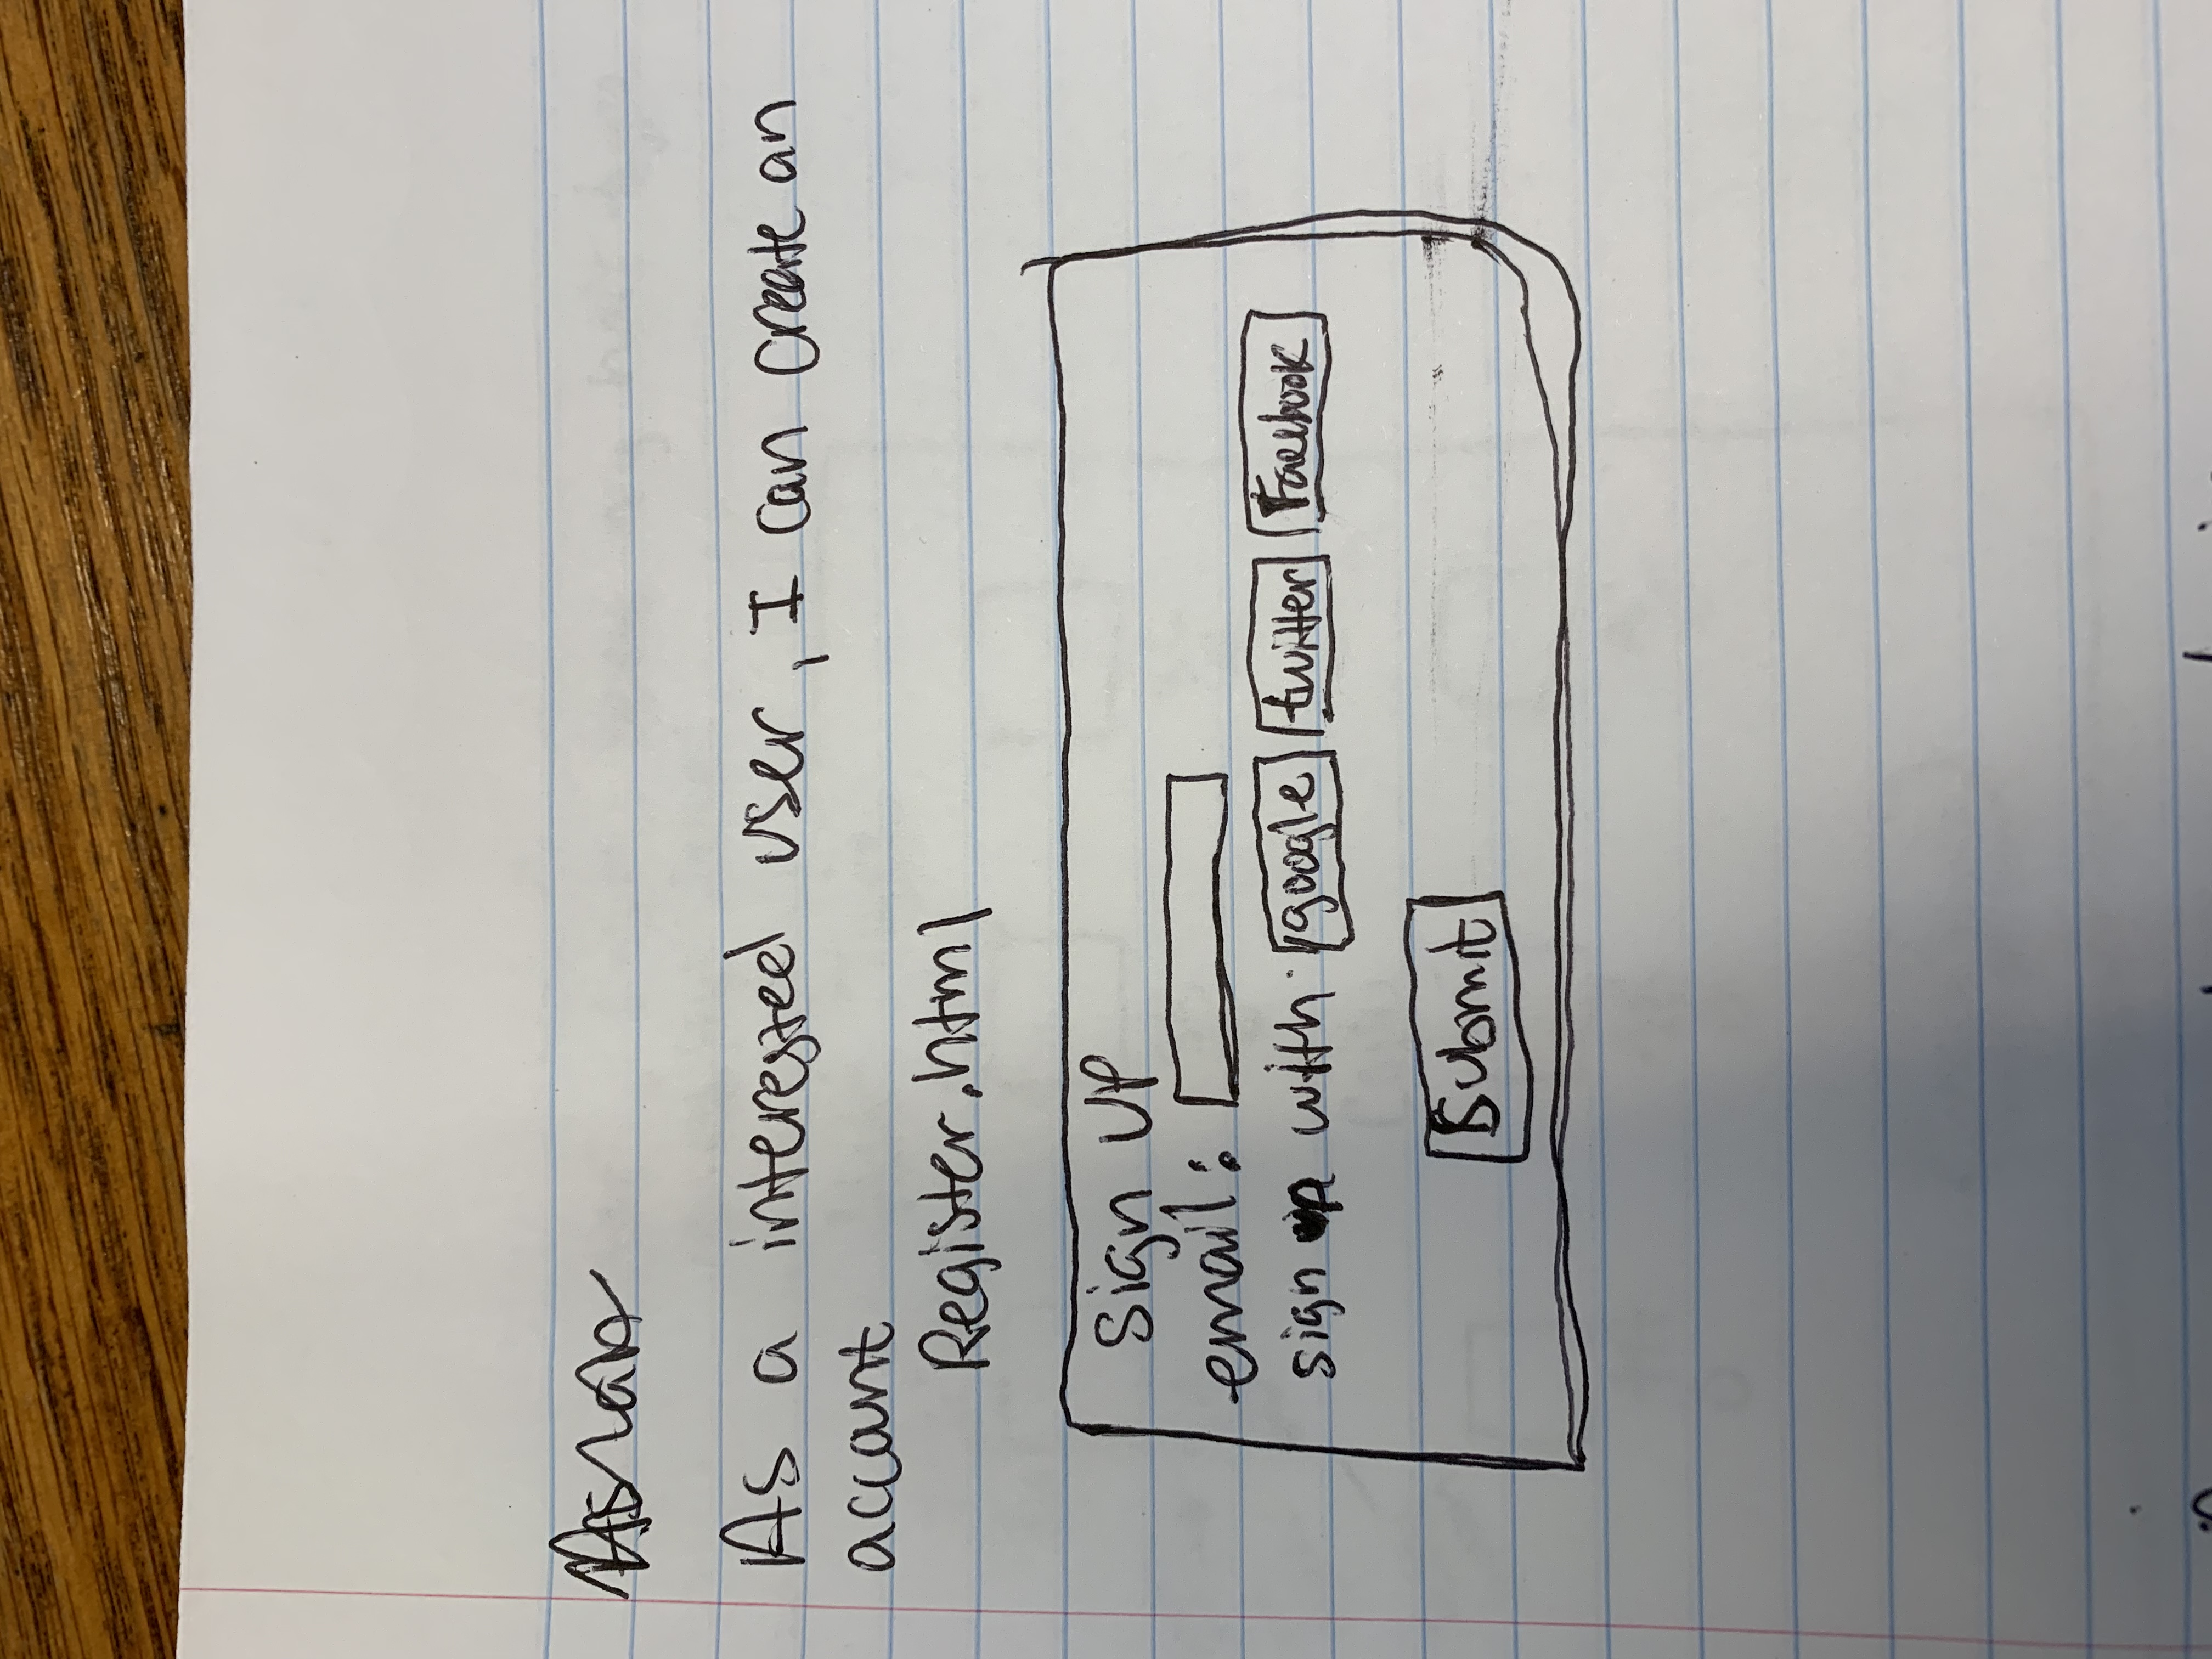 As a interested user, I can create an
account
Register.html
Sign UP
email:
sign up with google twitter Facebook
Submit